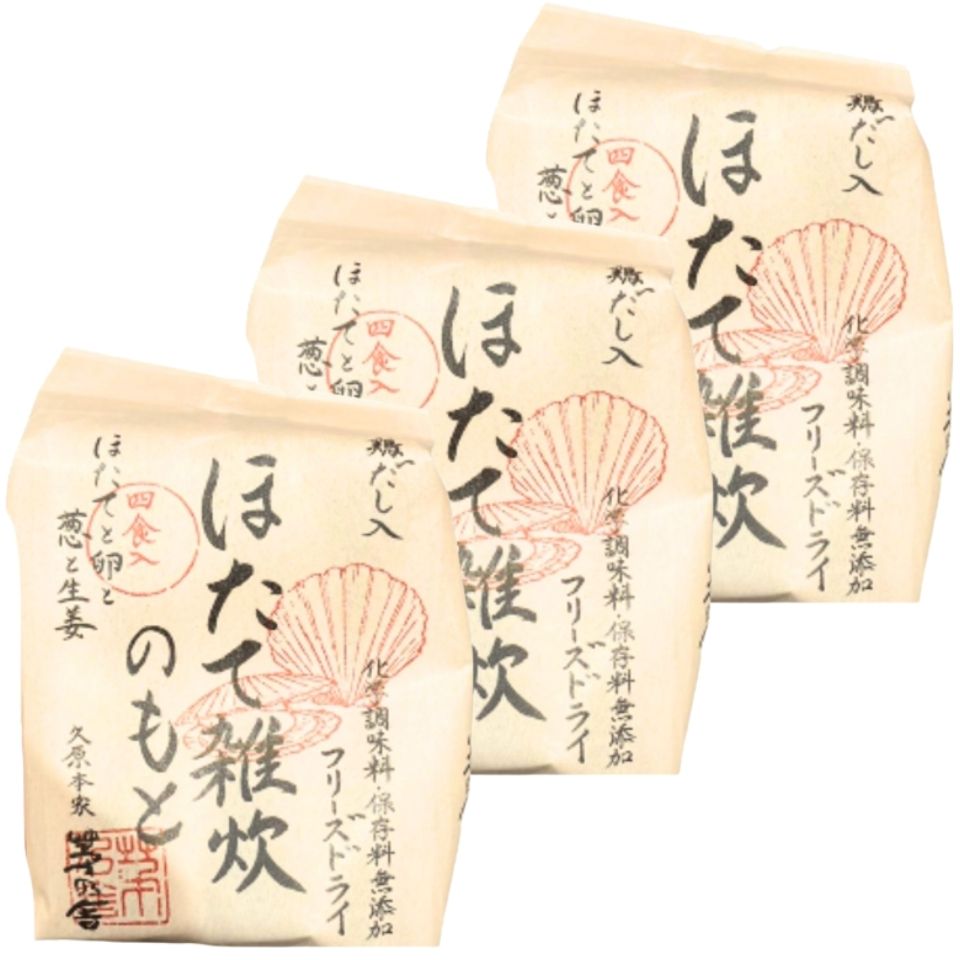 鶏だし入
ほたて雑炊
のもと
化学調味料・保存料無添加
フリーズドライ
四食入
ほたてと卵と
葱と生姜
久原本家
茅乃舎
鶏だし入
ほたて雑炊
化学調味料・保存料無添加
フリーズドライ
四食入
ほたてと卵
葱
鶏だし入
ほたて雑炊
化学調味料・保存料無添加
フリーズドライ
四食入
ほたてと卵
葱